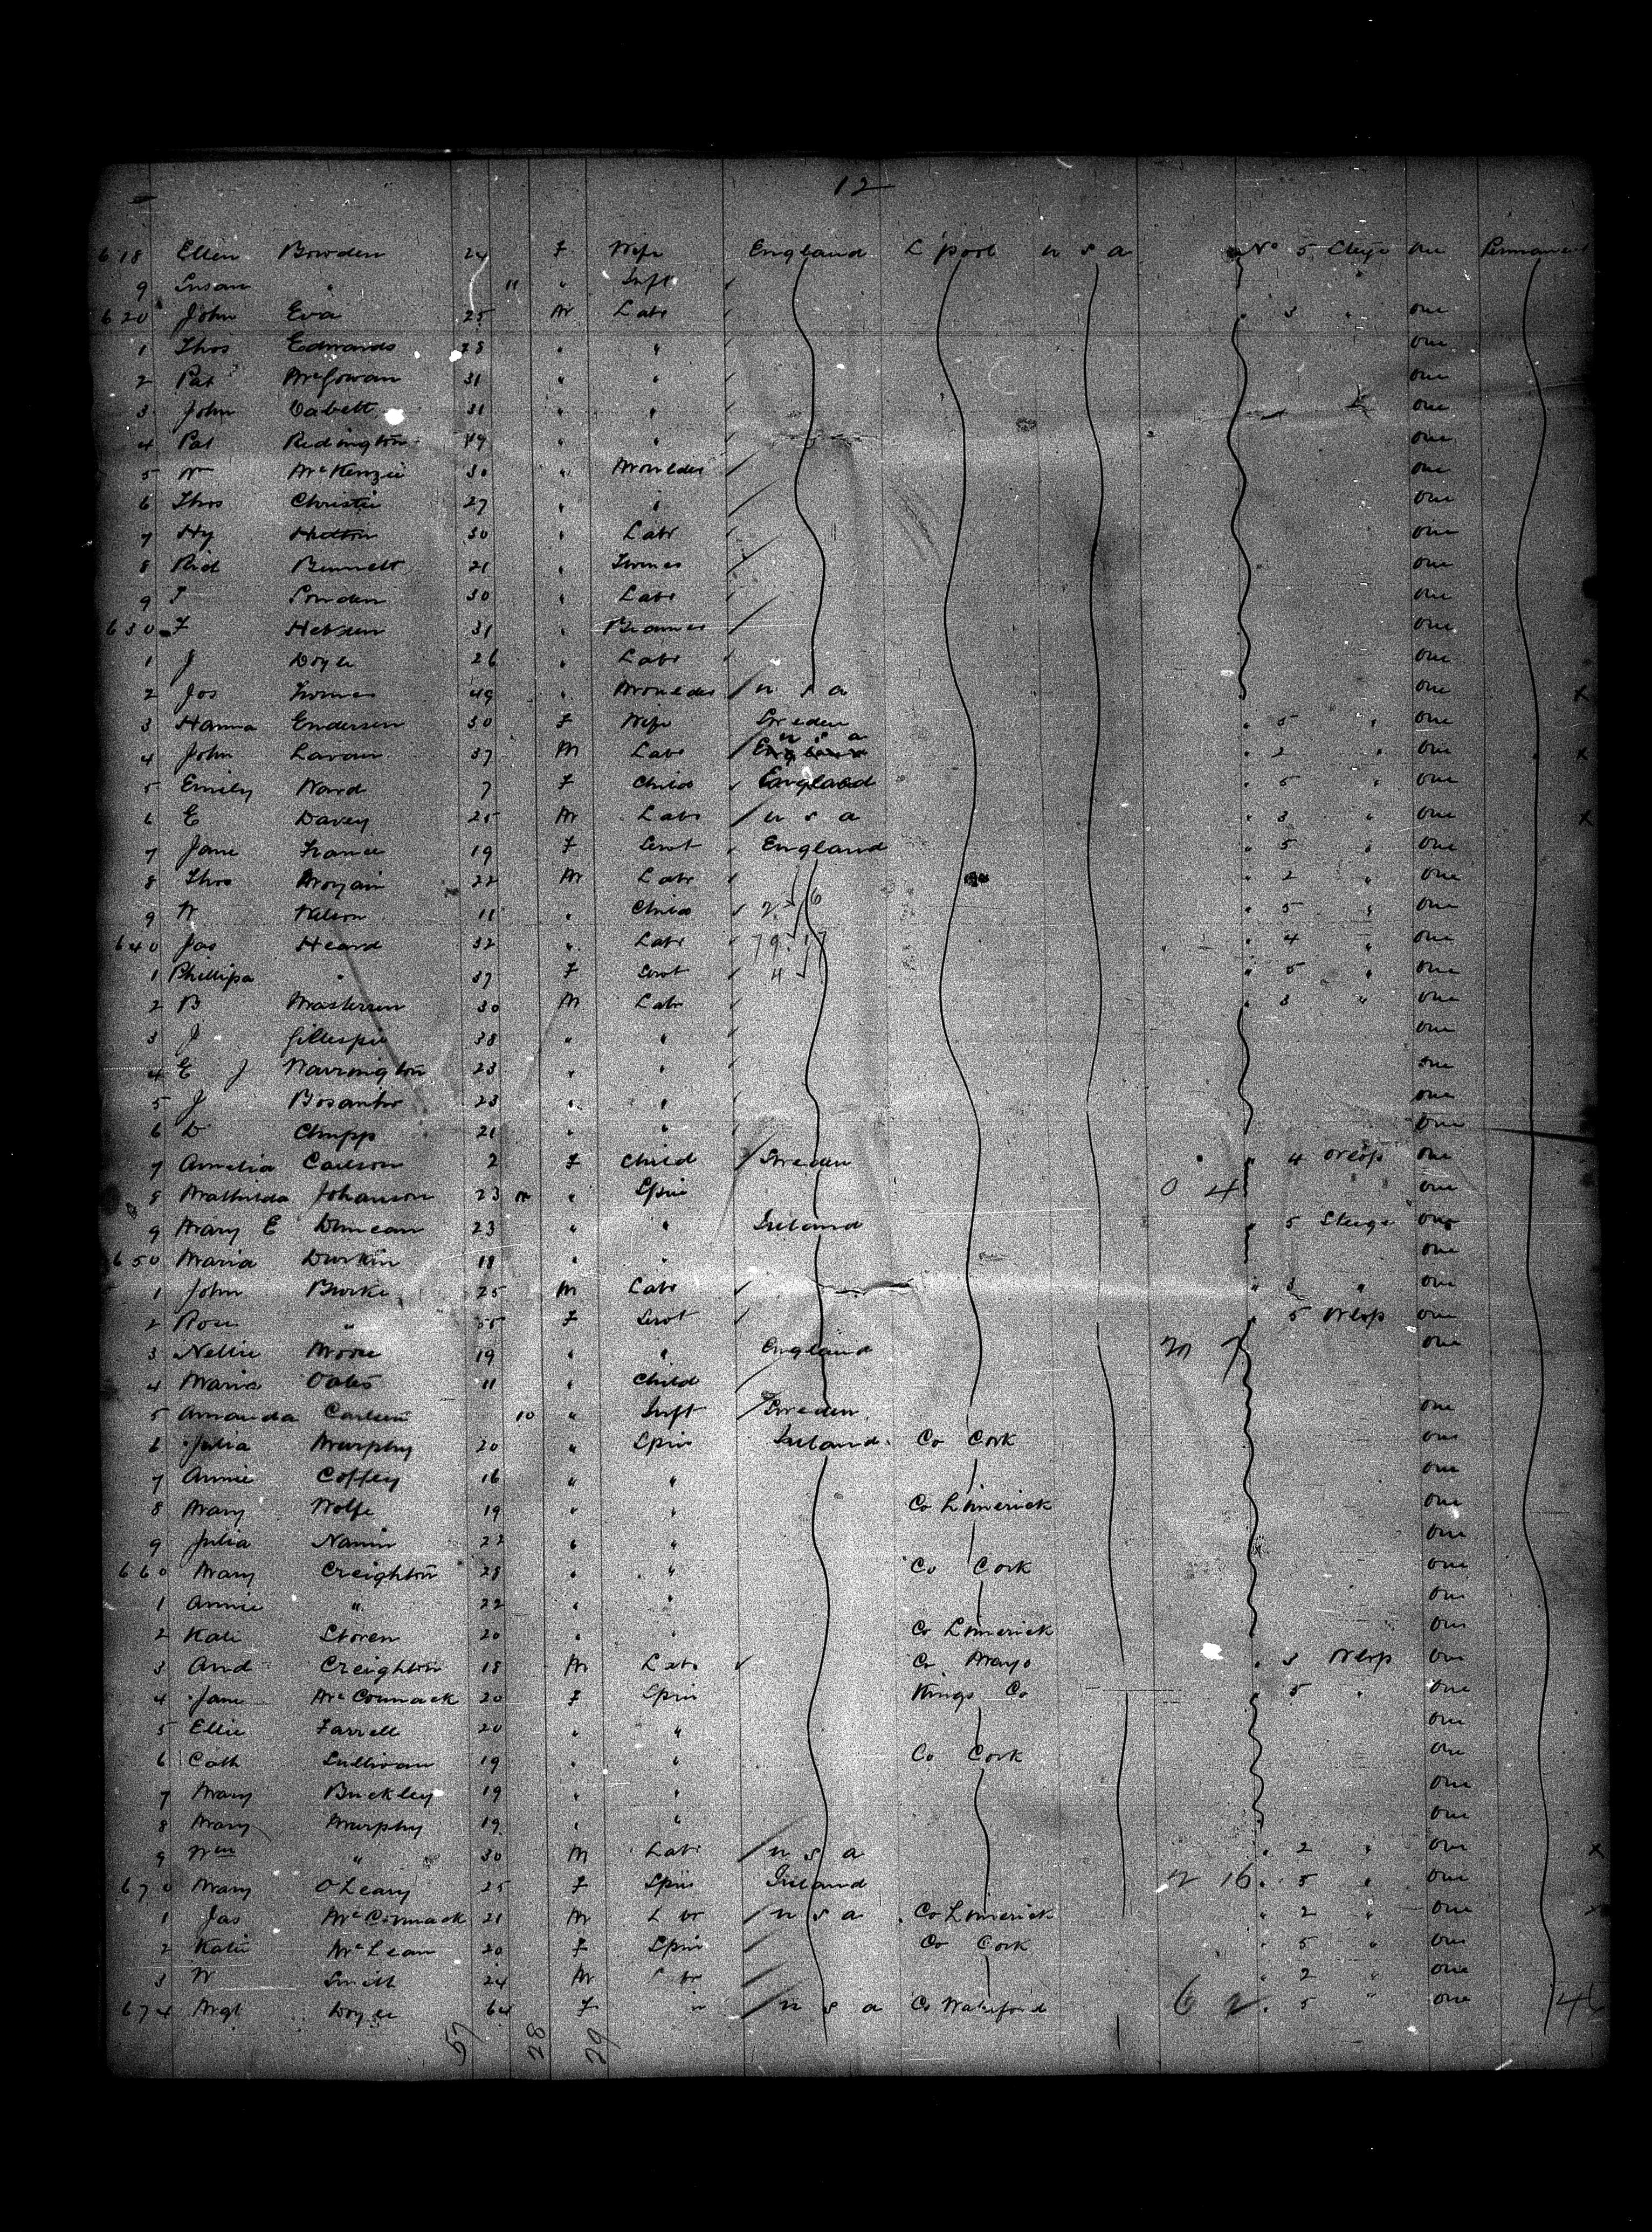 12
618 Ellen Bowden 24 F Wife England L'pool U S A No 5 Stege One Permanent
9 Susan " 11 " Inft
620 John Eva 25 M Labr " 3 " one
1 Thos Edwards 28 " " one
2 Pat McGowan 31 " " one
3 John 31 " " one
4 Pat Redington 49 " " one
5 Wm McKenzie 30 " Moulder one
6 Thos Christie 27 " " one
7 Hy Hutton 30 " Labr one
8 Rid Bennett 21 " one
9 30 " Labr one
630 F 31 " one
1 J Doyle 26 " Labr one
2 Jos 49 " Moulder U S A one X
3 Hanna Enderson 30 F Wife Sweden " 5 " one
4 John Lavan 37 M Labr England U S A " 2 " one X
5 Emily Ward 7 F Child England " 5 " one
6 E Davey 25 M Labr U S A " 3 " one X
7 Jane France 19 F Servt England " 5 " one
8 Thos 22 M Labr " 2 " one
9 W 11 " Child " 5 " one
640 Jas Heard 32 " Labr " 4 " one
1 Phillipa " 37 F Servt " 5 " one
2 B Masterson 30 M Labr " 3 " one
3 J Gillespie 38 " " one
4 E J Warrington 23 " " one
5 J Bosanko 23 " " one
6 D Chupp 21 " " one
7 Amelia Carlson 2 F Child Sweden " 4 Orlop one
8 Mathilda Johanson 23 " Spin 0 4 one
9 Mary E Duncan 23 " " Ireland " 5 Steege one
650 Maria Durkin 18 " " one
1 John Burke 25 M Labr " 3 " one
2 Rose " F Servt 5 Orlop one
3 Nellie Moore 19 " " England one
4 Maria Oates 11 " Child
5 Amanda Carlson 10 " Inft Sweden one
6 Julia Murphy 20 " Spin Ireland Co Cork one
7 Annie Coffey 16 " " one
8 Mary Wolfe 19 " " Co Limerick one
9 Julia 22 " " one
660 Mary Creighton 28 " " Co Cork one
1 Annie " 22 " " one
2 Kate Storen 20 " " Co Limerick one
3 And Creighton 18 M Labr Co Mayo " 3 Orlop one
4 Jane McCormack 20 F Spin Kings Co " 5 " one
5 Ellie Farrell 20 " " one
6 Cath Sullivan 19 " " Co Cork one
7 Mary Buckley 19 " " one
8 Mary Murphy 19 " " one
9 Wm " 30 M Labr U S A " 2 " one X
670 Mary O'Leary 25 F Spin Ireland 2 16 " 5 " one
1 Jas McCormack 21 M Labr U S A Co Limerick " 2 " one X
2 Katie McLean 20 F Spin Co Cork " 5 " one
3 W Smith 24 M Labr " 2 " one
674 Mgt Doyle 64 F " U S A Co Waterford 6 2 " 5 " one
57 28 29